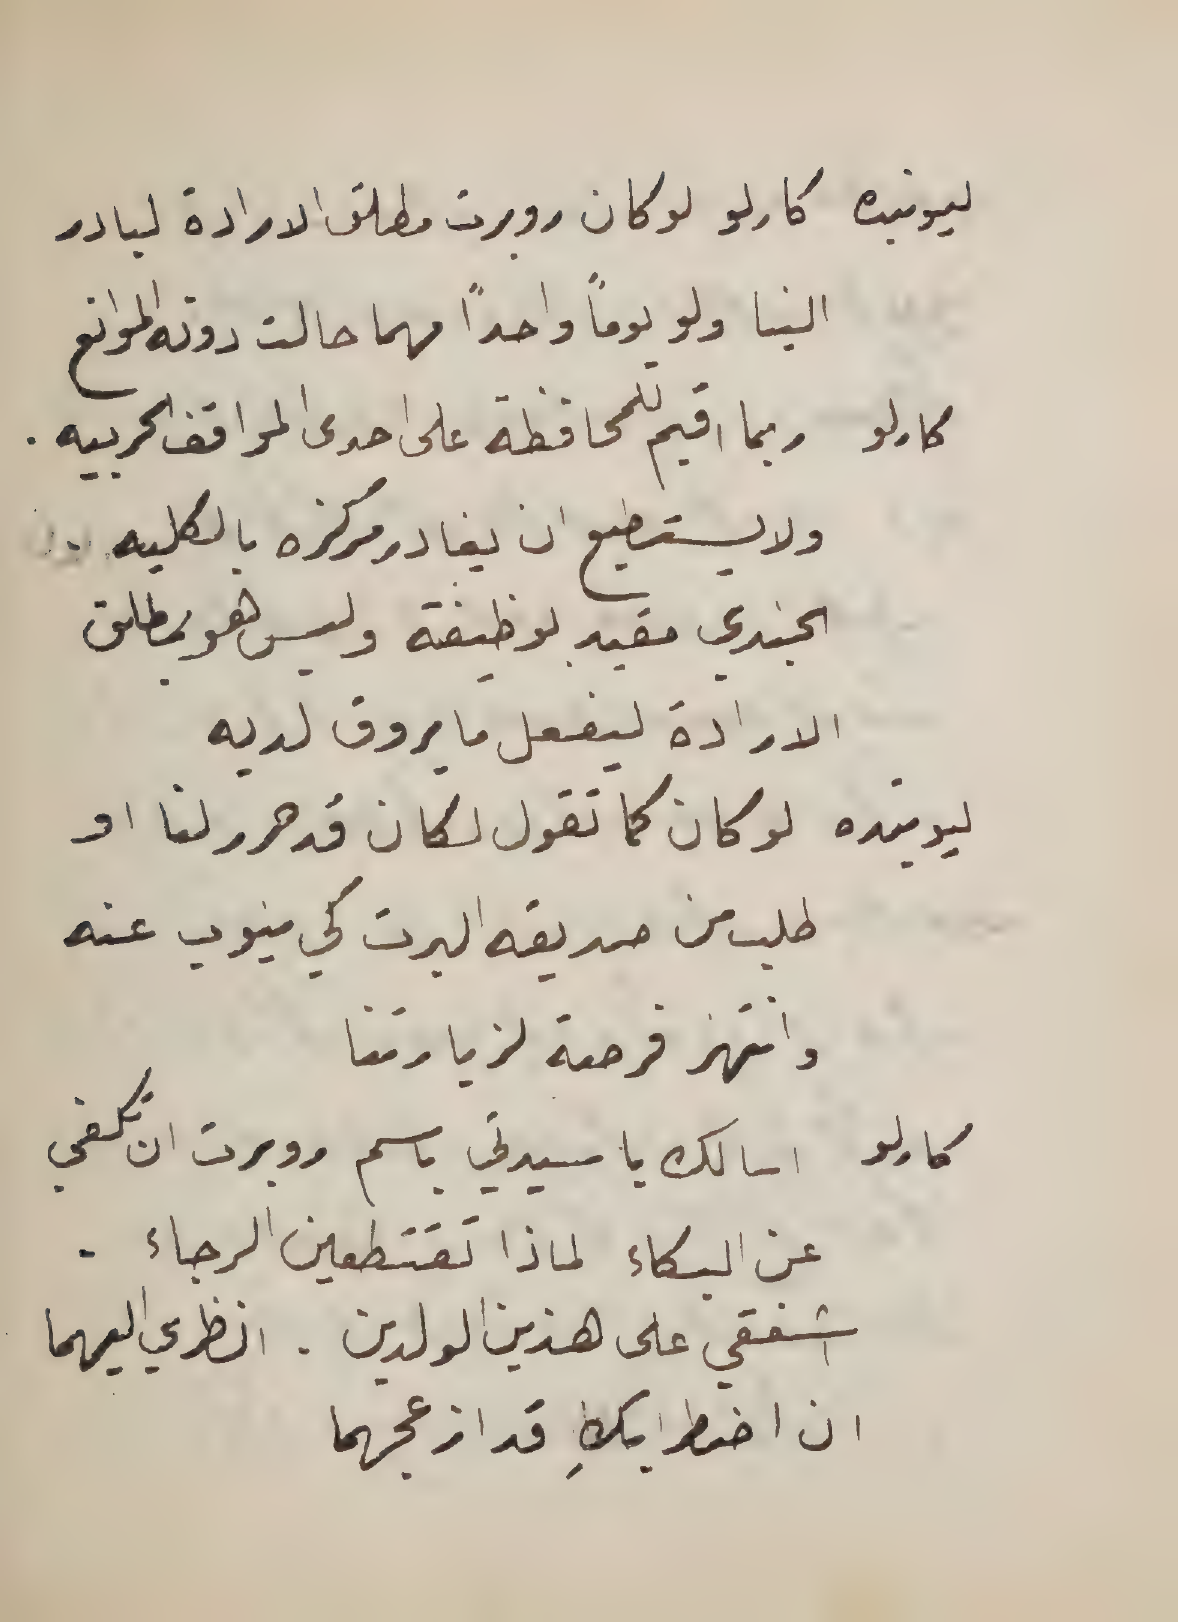 ليونيده كارلو لوكان روبرت مطلق الارادة لبادر
الينا ولو يوماً واحداً مهما حالت دونه الموانع
كارلو ربما اقيم للمحافظة على احدى المواقف الحربيه .
ولا يستطيع ان يغادر مركزه بالكليه .
الجندي مقيد بوظيفة وليس هو بمطلق
الارادة ليفعل ما يروق لديه
ليونيده لوكان كما تقول لكان قد حرر لنا او
طلب من صديقه البرت كي ينوب عنه
وانتهز فرصة لزيارتنا
كارلو اسالك يا سيدتي باسم روبرت ان تكفي
عن البكاء لماذا تقتطعين الرجاء .
اشفقي على هذين الولدين . انظري اليهما
ان اضطرابكِ قد ازعجهما